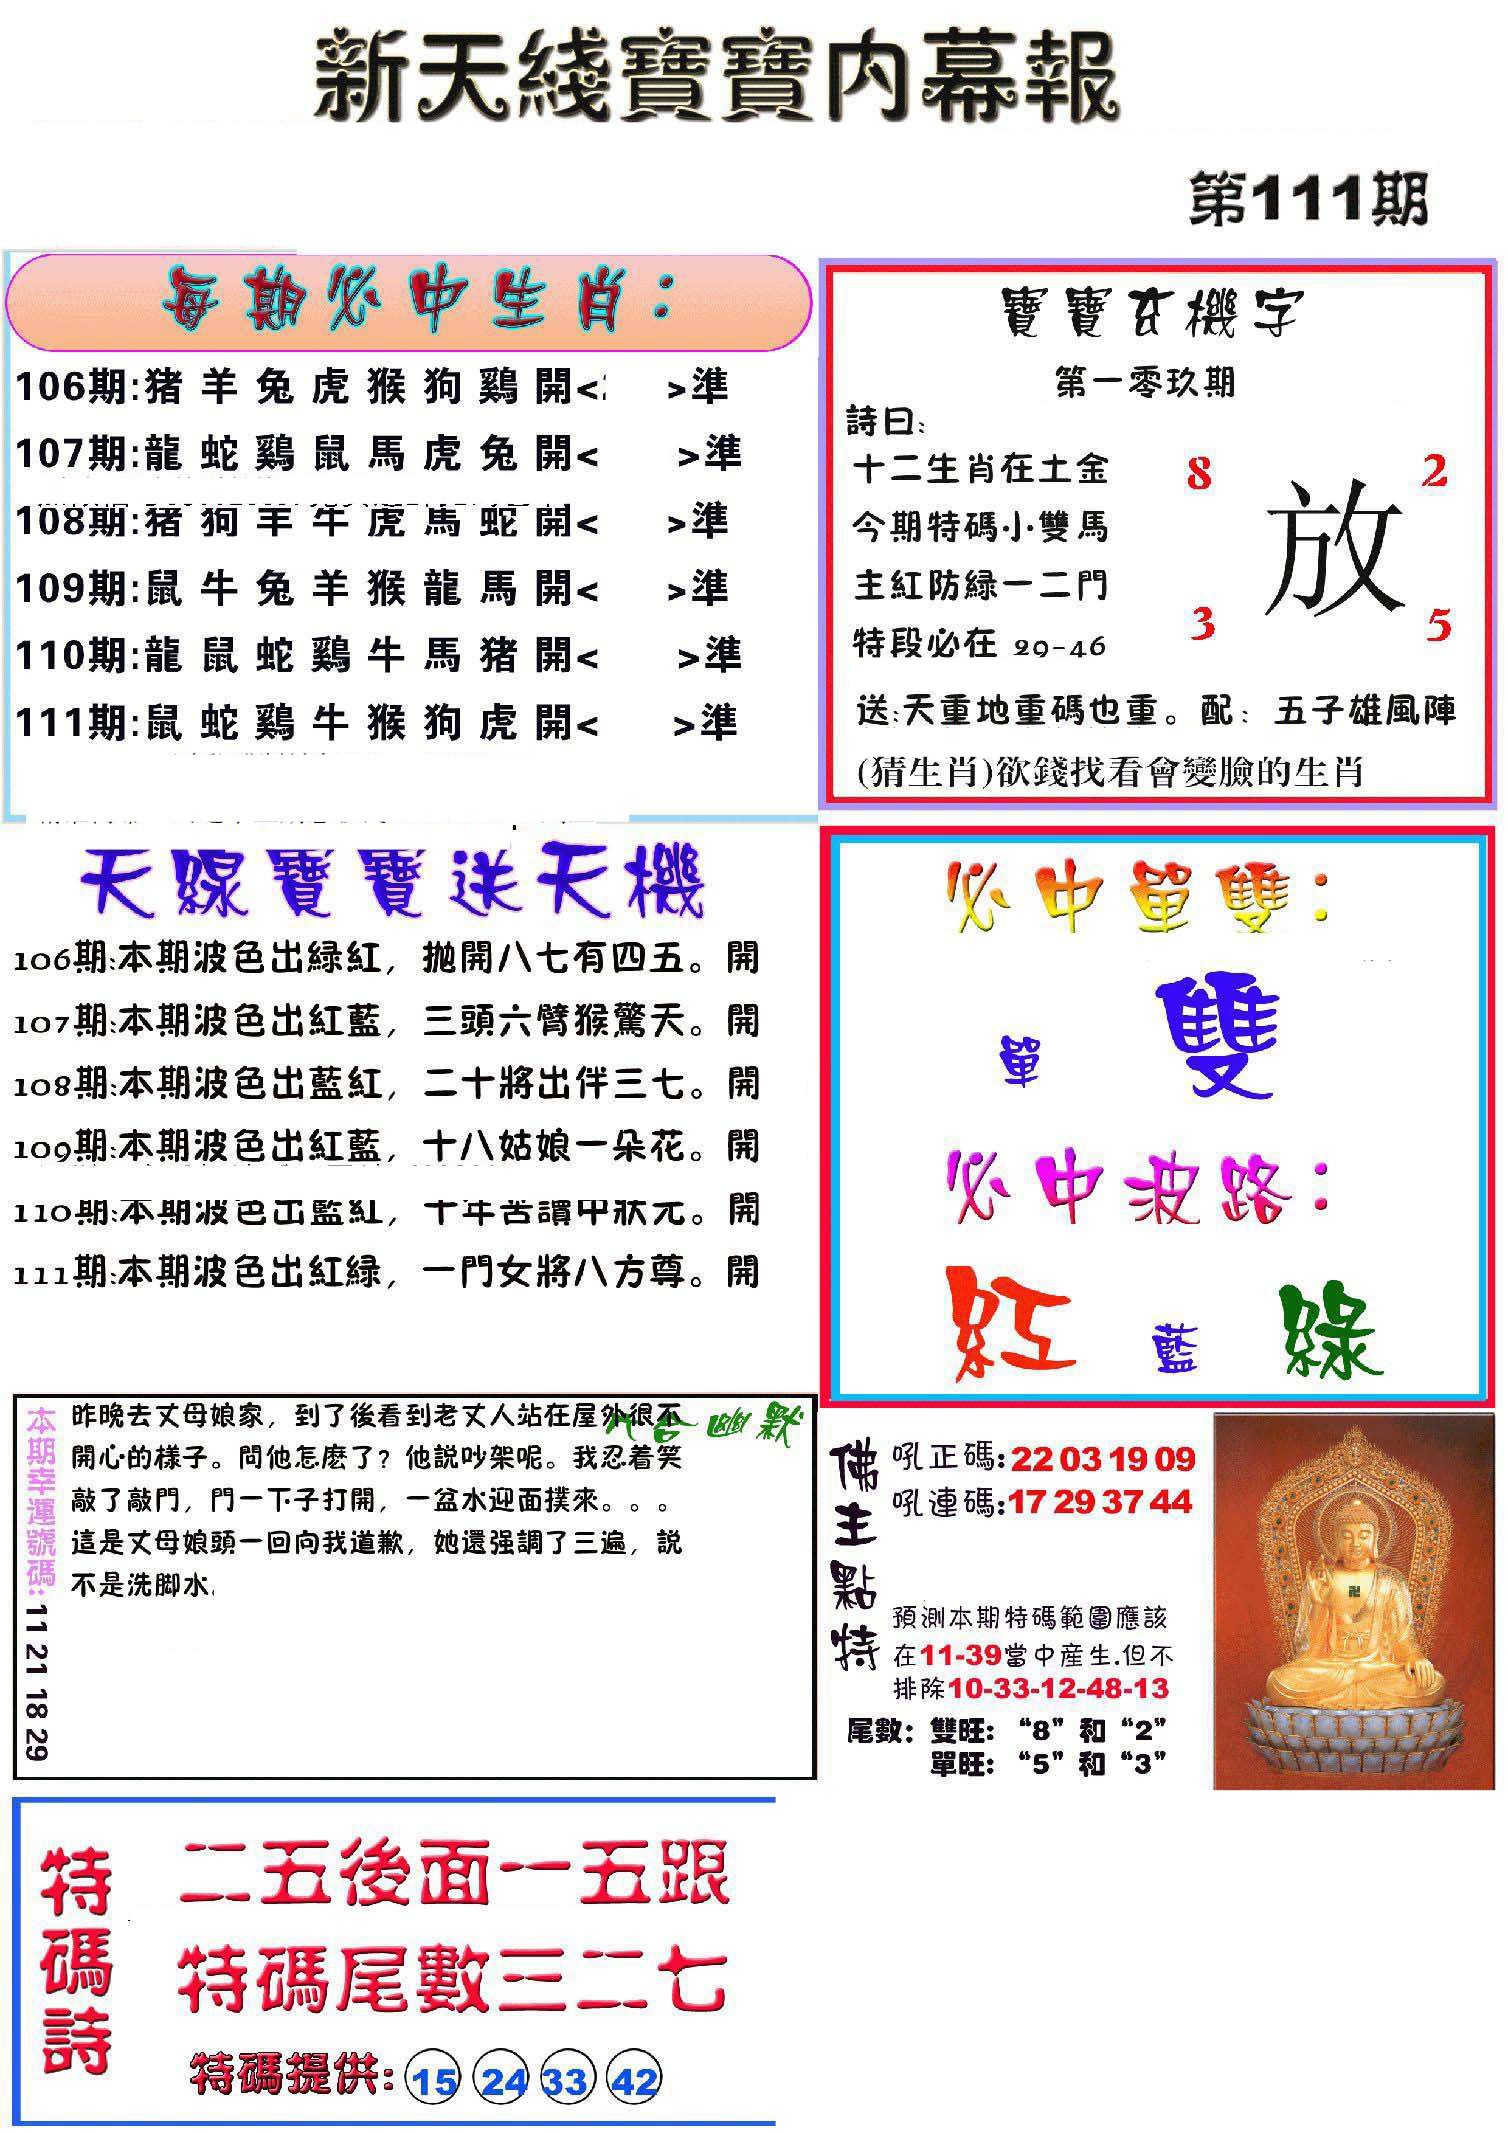 新天綫寶寶内幕報
第111期
每期必中生肖：
106期:猪羊兔虎猴狗鷄開< >準
107期:龍蛇鷄鼠馬虎兔開< >準
108期:猪狗羊牛虎馬蛇開< >準
109期:鼠牛兔羊猴龍馬開< >準
110期:龍鼠蛇鷄牛馬猪開< >準
111期:鼠蛇鷄牛猴狗虎開< >準
寶寶玄機字
第一零玖期
詩曰:
十二生肖在土金
今期特碼小雙馬
主紅防緑一二門
特段必在 29-46
8 2
放
3 5
送:天重地重碼也重。配：五子雄風陣
(猜生肖)欲錢找看會變臉的生肖
天線寶寶送天機
106期:本期波色出緑紅，抛開八七有四五。開
107期:本期波色出紅藍，三頭六臂猴驚天。開
108期:本期波色出藍紅，二十將出伴三七。開
109期:本期波色出紅藍，十八姑娘一朵花。開
110期:本期波色出藍紅，十年苦讀中狀元。開
111期:本期波色出紅緑，一門女將八方尊。開
必中單雙：
單 雙
必中波路：
紅 藍 綠
本期幸運號碼:11 21 18 29
六合幽默
昨晚去丈母娘家，到了後看到老丈人站在屋外很不
開心的樣子。問他怎麽了？他説吵架呢。我忍着笑
敲了敲門，門一下子打開，一盆水迎面撲來。。。
這是丈母娘頭一回向我道歉，她還强調了三遍，説
不是洗脚水.
佛主點特
吼正碼:22 03 19 09
吼連碼:17 29 37 44
預測本期特碼範圍應該
在11-39當中産生.但不
排除10-33-12-48-13
尾數：雙旺：“8”和“2”
單旺：“5”和“3”
卍
特碼詩
二五後面一五跟
特碼尾數三二七
特碼提供: 15 24 33 42